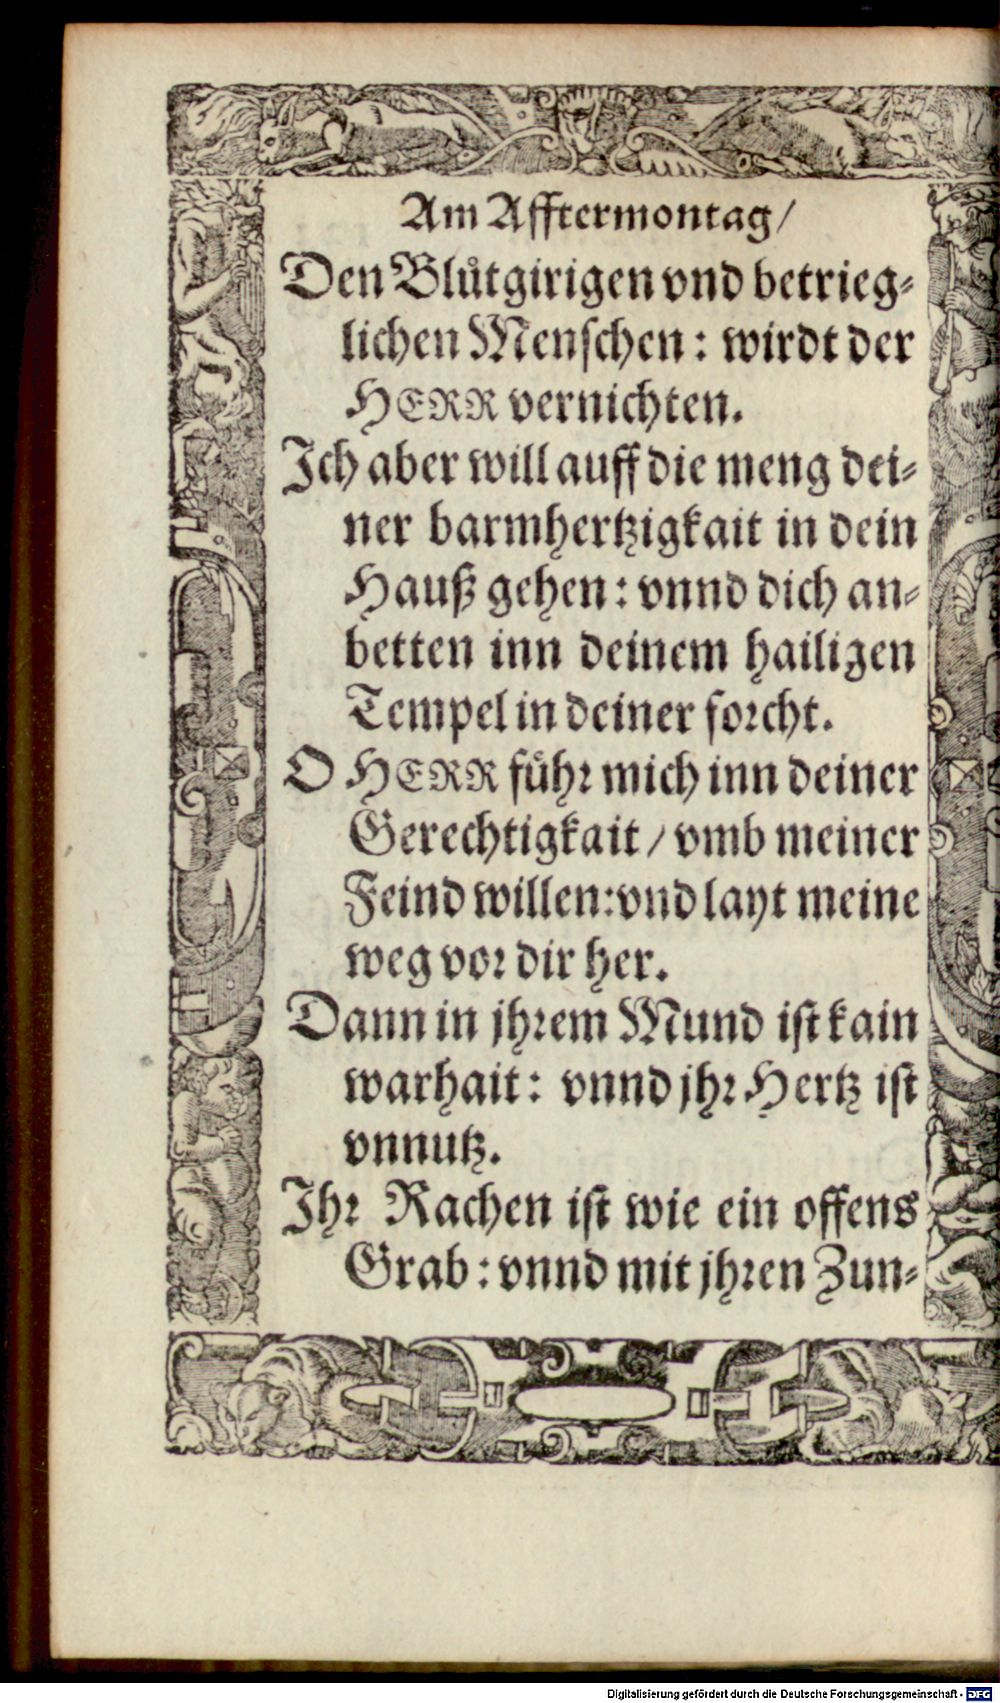 Am Afftermontag/
Den Blůtgirigen vnd betrieg-
lichen Menschen: wirdt der
HERR vernichten.
Ich aber will auff die meng dei-
ner barmhertzigkait in dein
Hauß gehen: vnnd dich an-
betten inn deinem hailigen
Tempel in deiner forcht.
O HERR fůhr mich inn deiner
Gerechtigkait / vmb meiner
Feind willen: vnd layt meine
weg vor dir her.
Dann in jhrem Mund ist kain
warhait: vnnd jhr Hertz ist
vnnutz.
Ihr Rachen ist wie ein offens
Grab: vnnd mit jhren Zun-
Digitalisierung gefördert durch die Deutsche Forschungsgemeinschaft - DFG